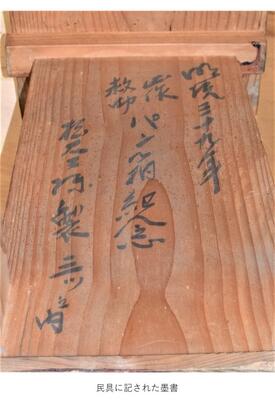 明治三十九年
救助パン箱紀念
製三ツ之内
民具に記された墨書